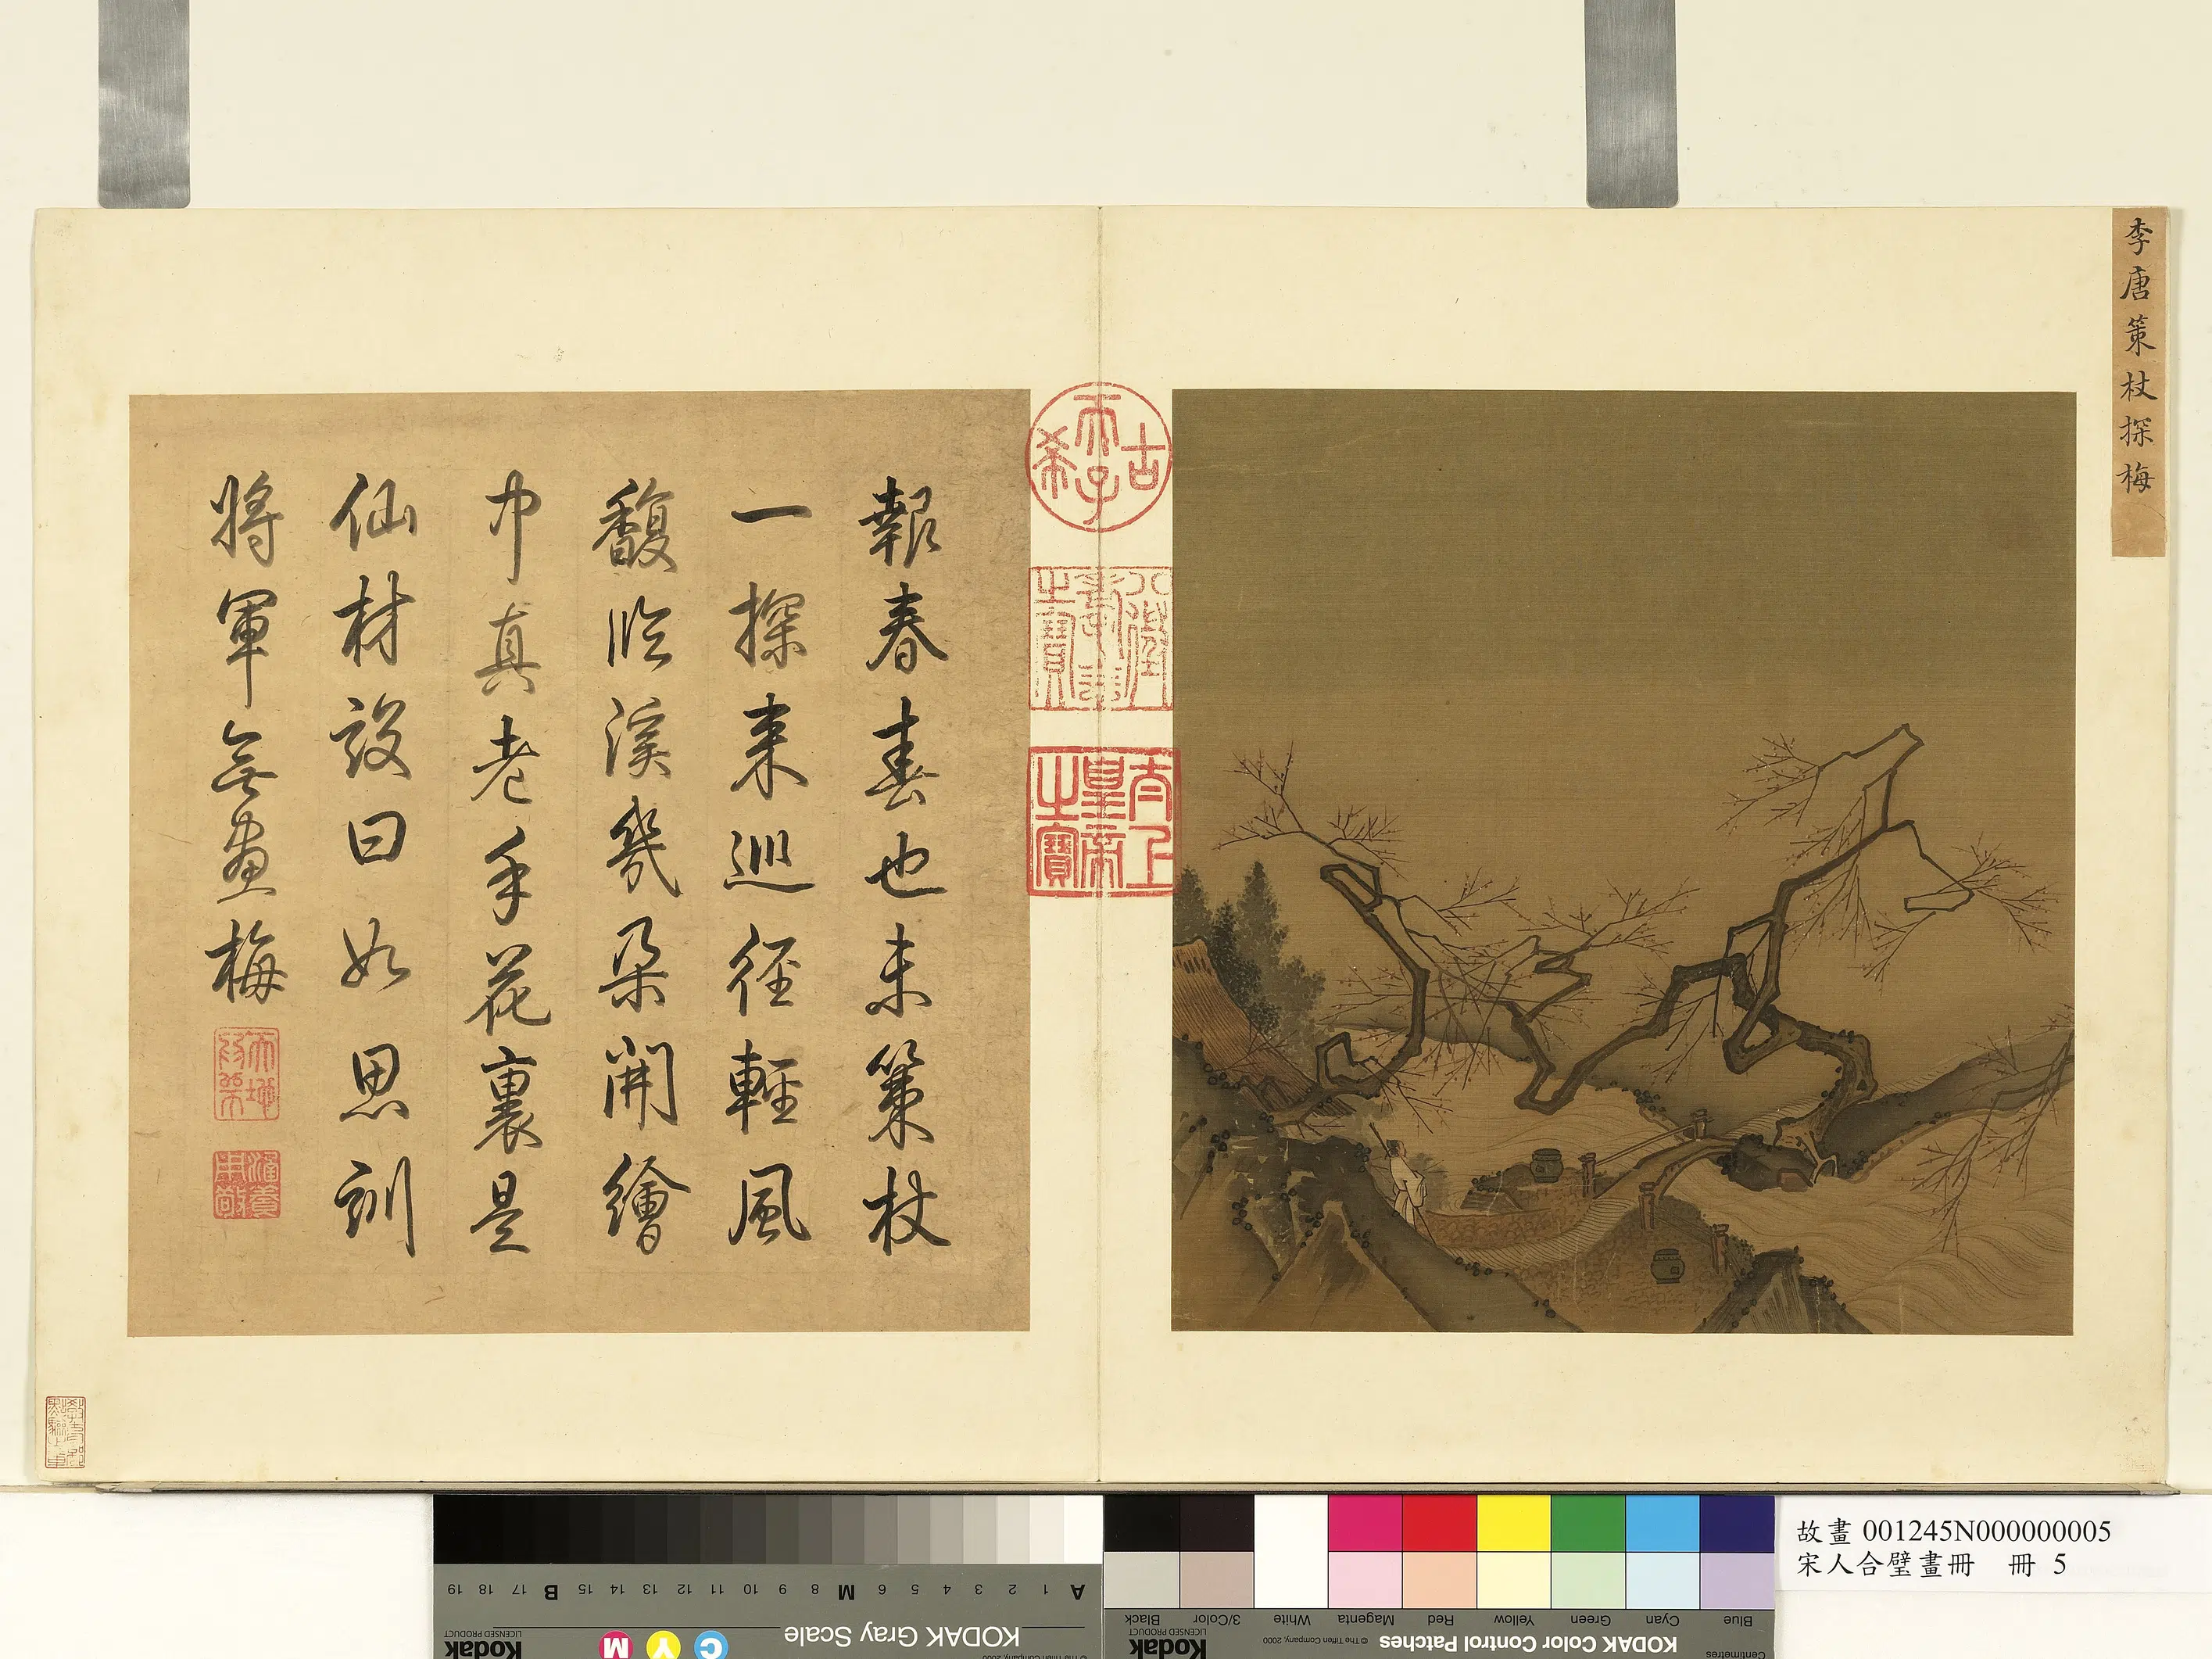 李唐策杖探梅
古希天子
八徵耄念之寶
太上皇帝之寶
報春春也未策杖
一探来巡径輕風
馥臨溪幾朶開繪
巾真老手花裏是
仙材設曰如思訓
將軍無畫梅
涵養用敬
故畫 001245N000000005
宋人合璧畫冊 冊 5
KODAK Gray Scale
Kodak
LICENSED PRODUCT
A 1 2 3 4 5 6 M 8 9 10 11 12 13 14 15 B 17 18 19
C Y M
KODAK Color Control Patches
© The Tiffen Company, 2000
Kodak
LICENSED PRODUCT
Centimetres
Blue Cyan Green Yellow Red Magenta White 3/Color Black